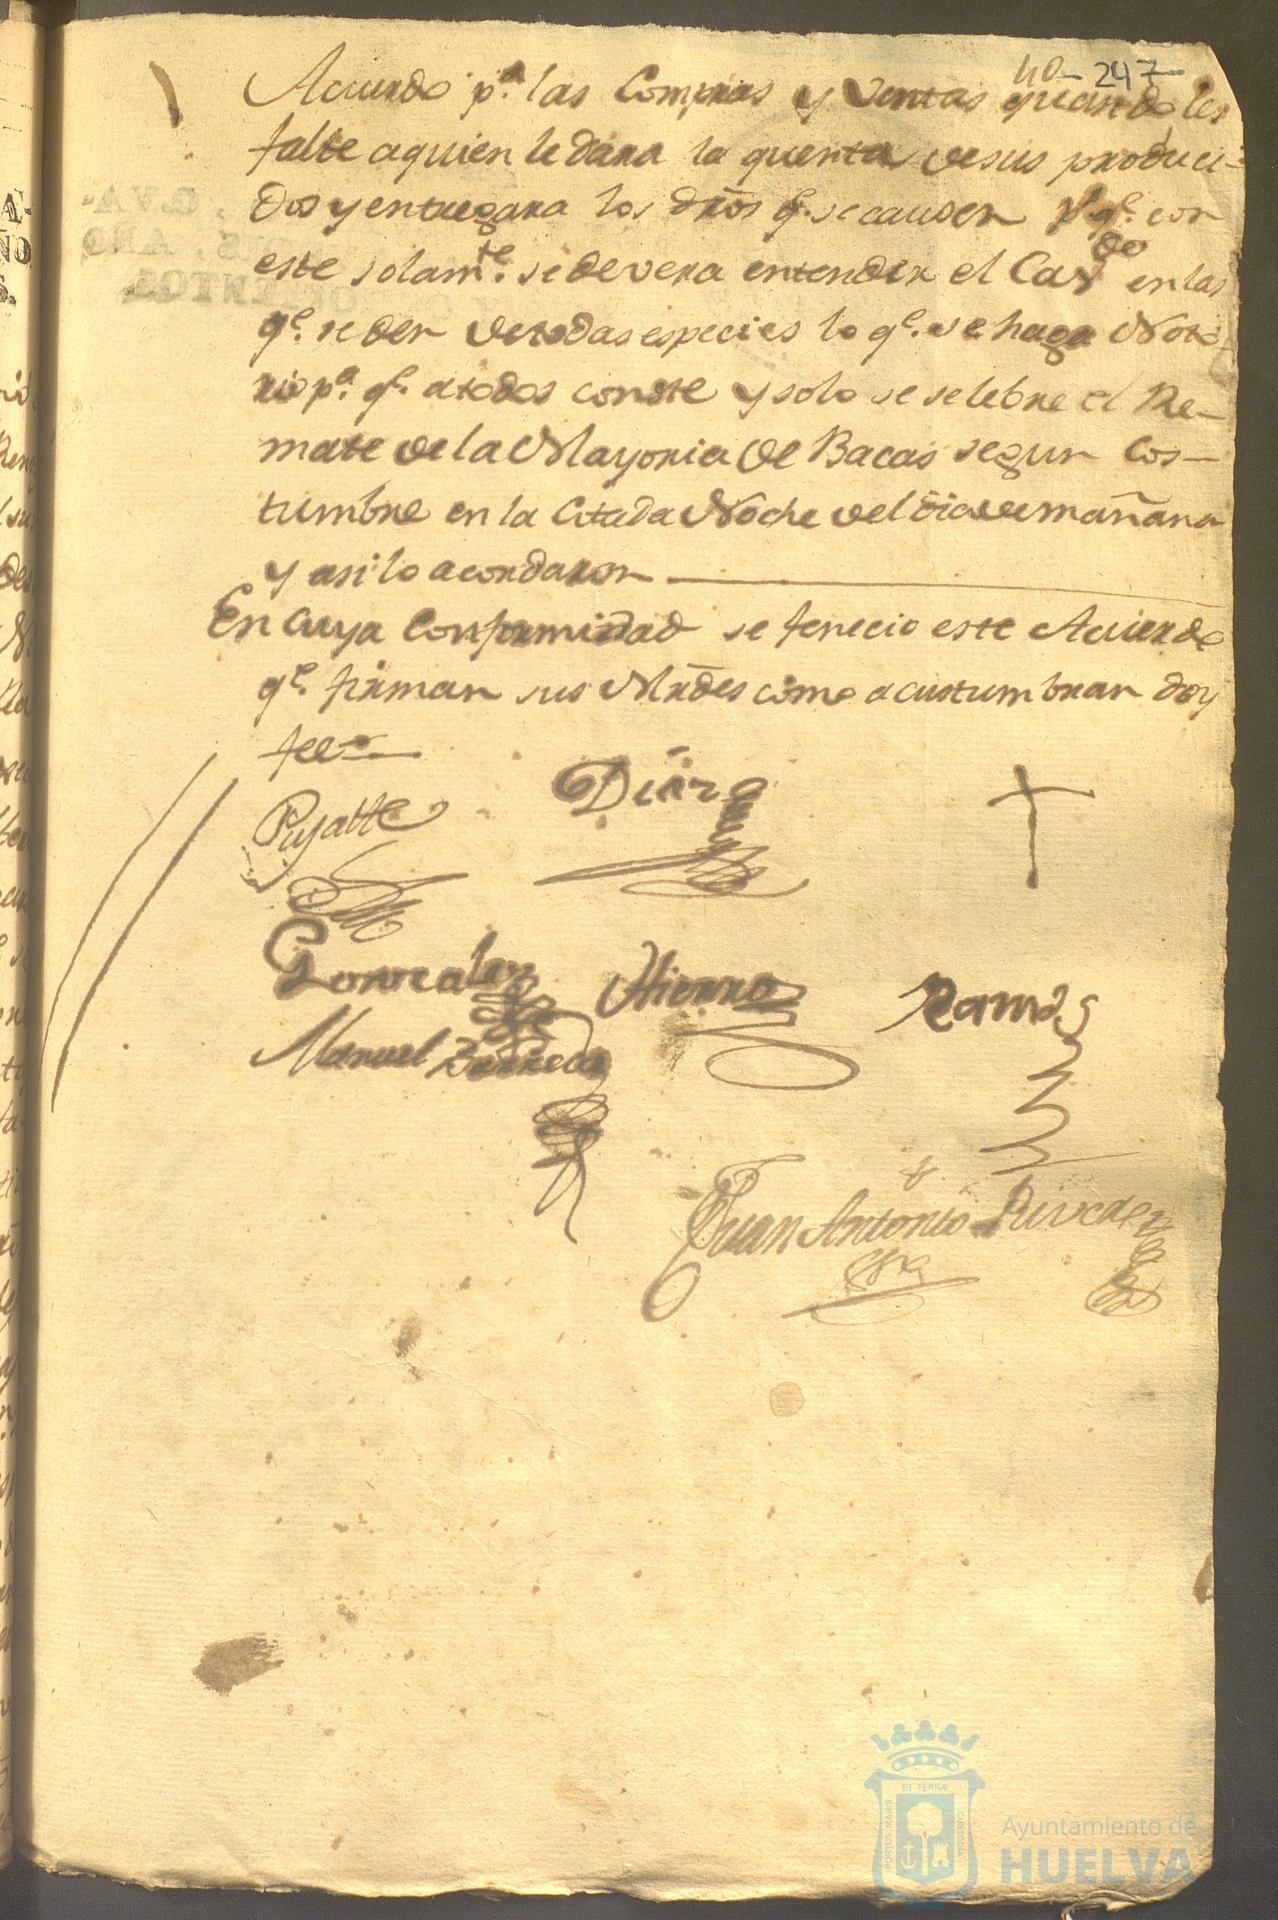 40 247
Acuerdo p.ª las Compras y Ventas quando les
falte a quien le dara la quenta de sus produci-
dos y entregara los dr̃os q.e se causen p.r q.e con
este solam.te se devera entender el Car.do en las
q.e se den de todas especies lo q.e se haga Noto
rio p.ª q.e a todos conste y solo se selebre el Re-
mate de la Mayoria de Bacas segun Cos-
tumbre en la Citada Noche del dia de mañana
y asi lo acordaron
En Cuya Conformidad se fenecio este Acuerdo
q.e firman sus Mr̃des como acustumbran doy
fee
Pujatte Diaz
Gonzalez Hierro Ramos
Manuel Barreda
Juan Antonio
ET TERRÆ
PORTUS MARIS
CUSTODIA
Ayuntamiento de
HUELVA